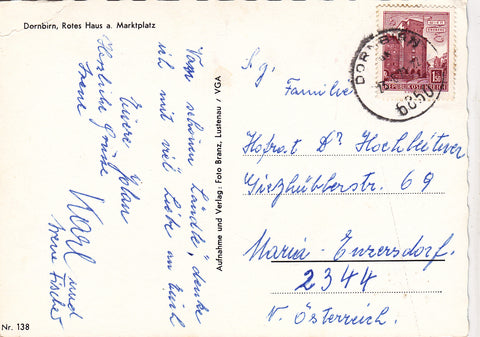 Dornbirn, Rotes Haus a. Marktplatz
Vom schönen Ländle, denke
ich mit viel Liebe an Euch
Eure Jolan
Herzliche Grüsse
Irene
Karl und
Irene Fischer
Nr. 138
Aufnahme und Verlag: Foto Branz, Lustenau / VGA
REPUBLIK ÖSTERREICH
DORNBIRN
6850
S.g.
Familie
Hofrat Dr Hochleitner
Gießhüblerstr. 69
Maria-Enzersdorf.
2344
N. Österreich.